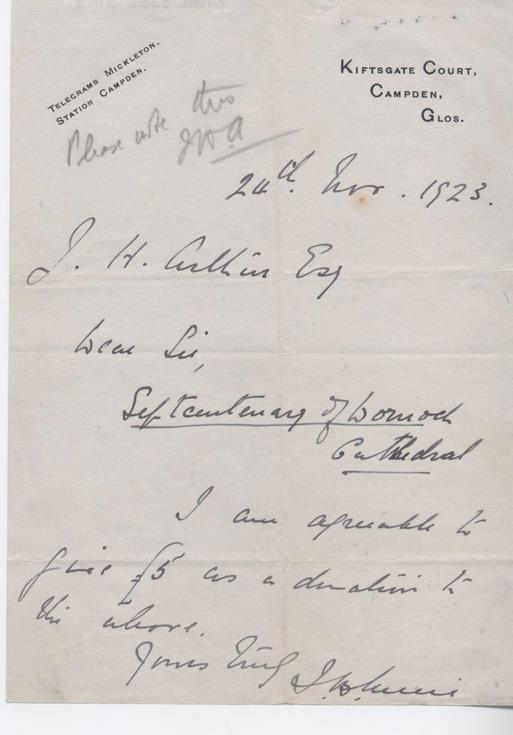 TELEGRAMS MICKLETON.
STATION CAMPDEN.
KIFTSGATE COURT,
CAMPDEN,
GLOS.
Please note this
24th. Nov. 1923.
J. H. Esq
Dear Sir,
Septcentenary of Dornoch
Cathedral
I am agreeable to
give £5 as a donation to
the above.
Yours truly